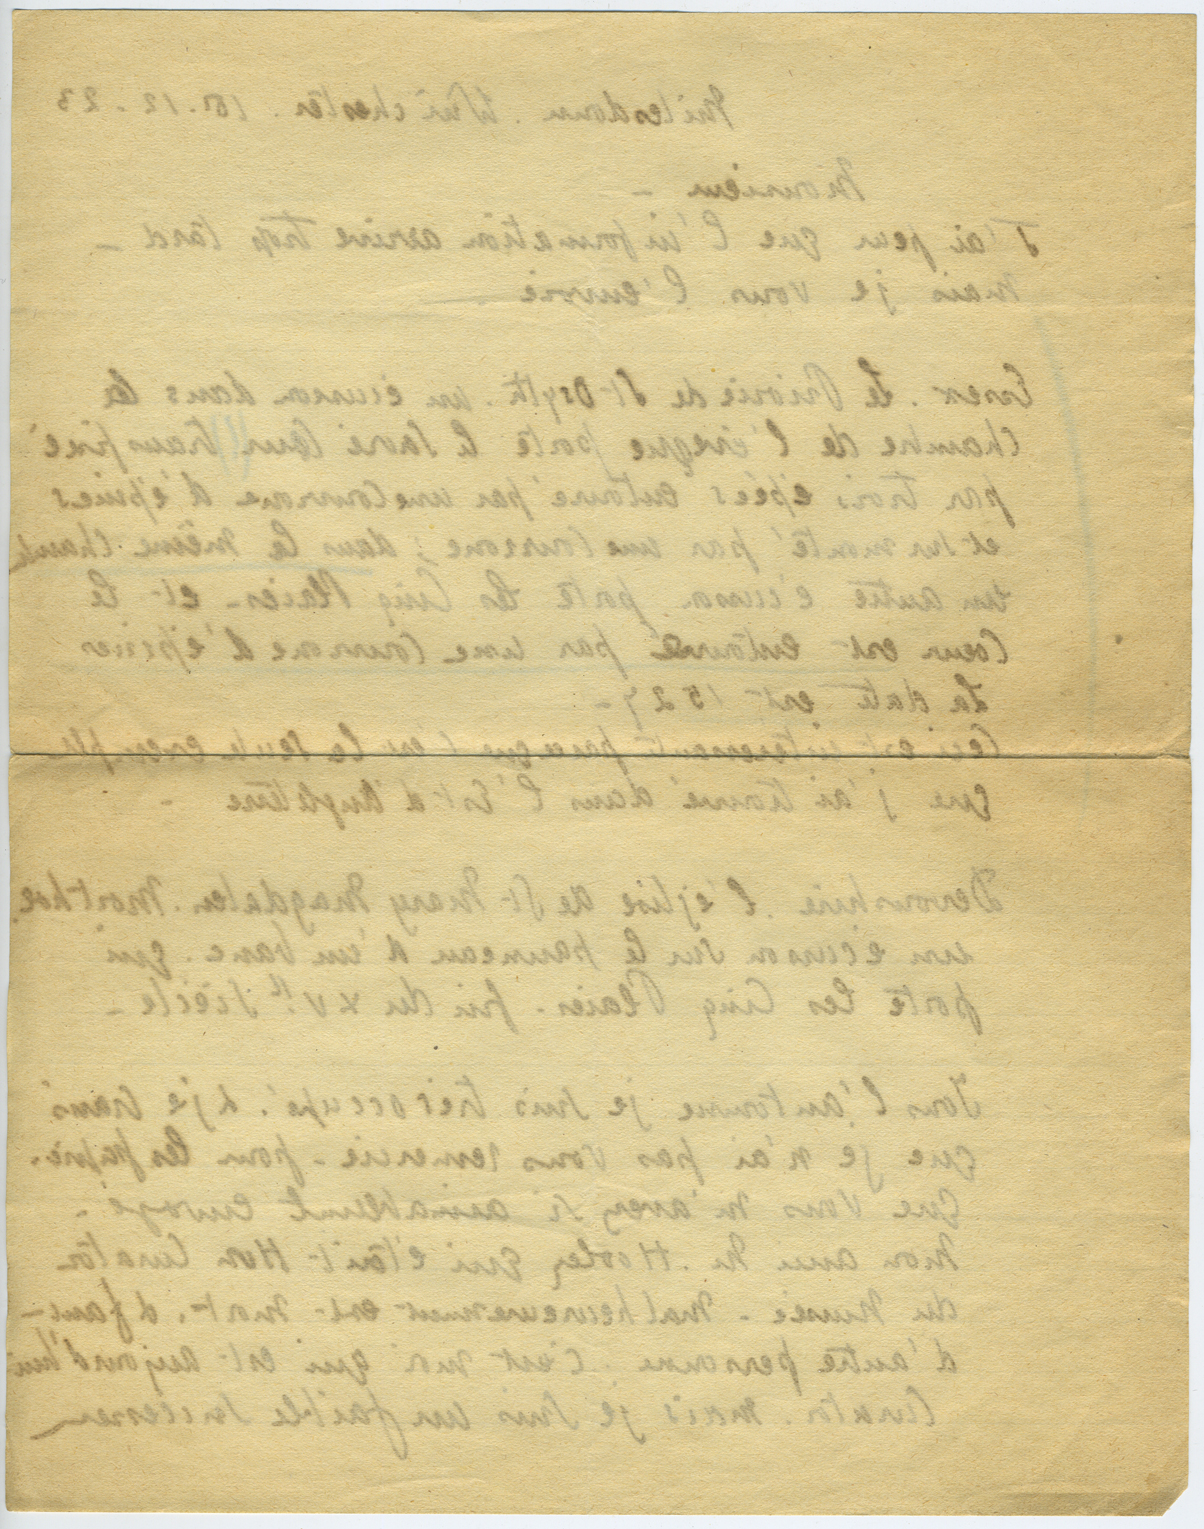 Milesdown. Winchester. 18.12.23
Monsieur —
J'ai peur que l'information arrive trop tard —
mais je vous l'envoie
Essex. Le Priorie de St Osyth. un écusson dans la
chambre de l'évêque porte le Sacré Cœur transfixé
par trois epées entouré par une couronne d'épines
et surmonté par une couronne; dans la même chambre
un autre écusson porte les Cinq Plaies - et le
Coeur est entouré par une Couronne d'épines
La date est 1527 —
Ceci est parceque c'est la seule exemple
que j'ai trouvé dans l'Est d'Angleterre —
Devonshire. l'église de St Mary Magdalen. Morthoe.
un écusson sur le panneau d'un banc. qui
porte les Cinq Plaies. fin du XVth siècle —
Tous l'automne je suis tres occupé. & je
que je n'ai pas vous remercie - pour les
que vous m'avez si aimablement envoyé —
Mon ami M. qui était Hon Curator
du Musée - malheureusement est mort. &
d'autre personne. c'est moi qui est aujourd'hui
Curator. mais je suis un faible successeur